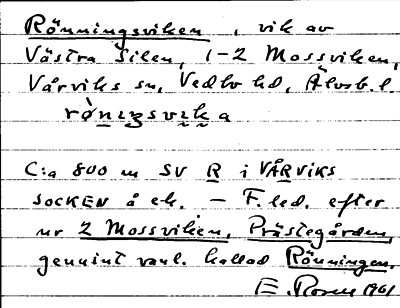 Rönningsviken, vik av
Västra Silen, 1-2 Mossviken,
Vårviks sn, Vedbo hd, Älvsb. l.
rø̀nıŋsvika
C:a 800 m SV R i VÅRVIKS
SOCKEN å ek. — F.led. efter
nr 2 Mossviken, Prästegården,
genuint vanl. kallad Rönningen.
E. Rosen 1961